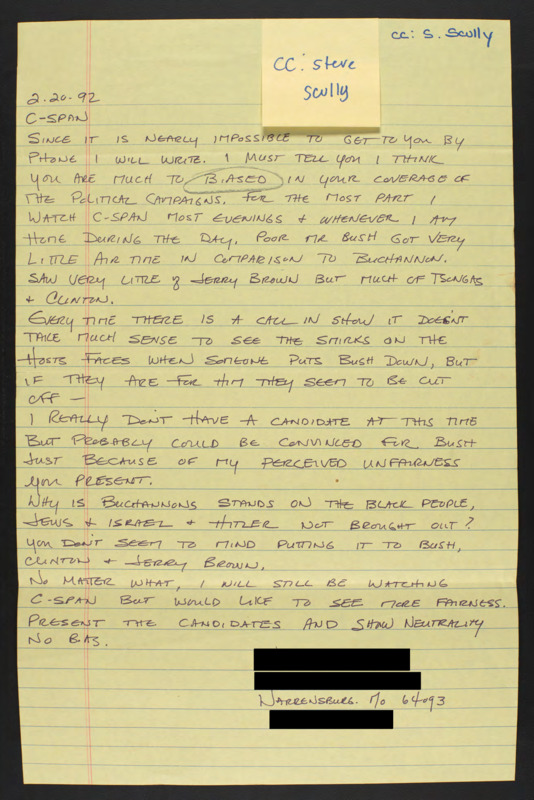 cc: S. Scully
CC: steve
scully
2.20.92
C-SPAN
SINCE IT IS NEARLY IMPOSSIBLE TO GET TO YOU BY
PHONE I WILL WRITE. I MUST TELL YOU I THINK
YOU ARE MUCH TO BIASED IN YOUR COVERAGE OF
THE POLITICAL CAMPAIGNS. FOR THE MOST PART I
WATCH C-SPAN MOST EVENINGS & WHENEVER I AM
HOME DURING THE DAY. POOR MR BUSH GOT VERY
LITTLE AIR TIME IN COMPARISON TO BUCHANNON.
SAW VERY LITTLE OF JERRY BROWN BUT MUCH OF TSONGAS
& CLINTON.
EVERY TIME THERE IS A CALL IN SHOW IT DOESN'T
TAKE MUCH SENSE TO SEE THE SMIRKS ON THE
HOSTS FACES WHEN SOMEONE PUTS BUSH DOWN, BUT
IF THEY ARE FOR HIM THEY SEEM TO BE CUT
OFF —
I REALLY DON'T HAVE A CANDIDATE AT THIS TIME
BUT PROBABLY COULD BE CONVINCED FOR BUSH
JUST BECAUSE OF MY PERCEIVED UNFAIRNESS
YOU PRESENT.
WHY IS BUCHANNONS STANDS ON THE BLACK PEOPLE,
JEWS & ISRAEL & HITLER NOT BROUGHT OUT?
YOU DON'T SEEM TO MIND PUTTING IT TO BUSH,
CLINTON & JERRY BROWN.
NO MATTER WHAT, I WILL STILL BE WATCHING
C-SPAN BUT WOULD LIKE TO SEE MORE FAIRNESS.
PRESENT THE CANDIDATES AND SHOW NEUTRALITY
NO BIAS.
WARRENSBURG. MO 64093